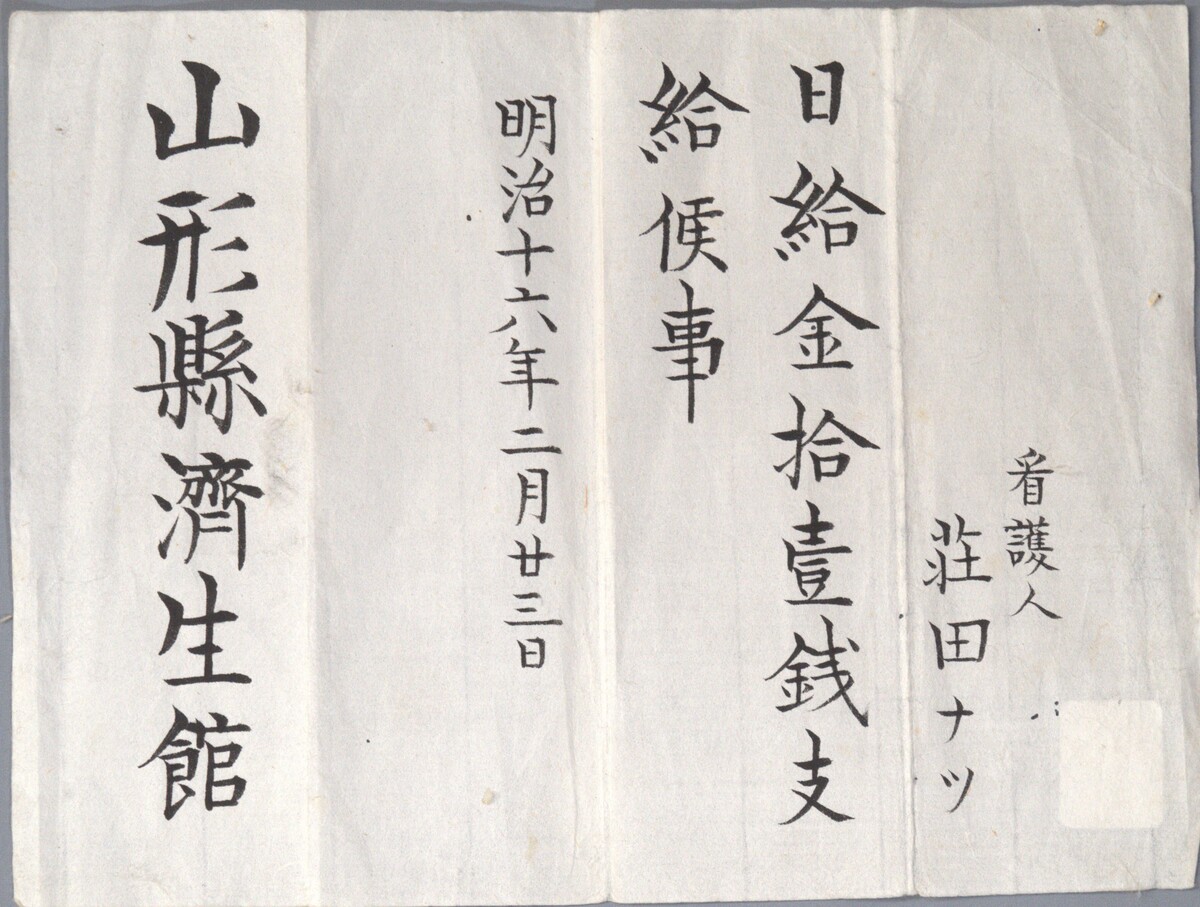 看護人
荘田ナツ
日給金拾壹銭支
給候事
明治十六年二月廿三日
山形縣濟生館